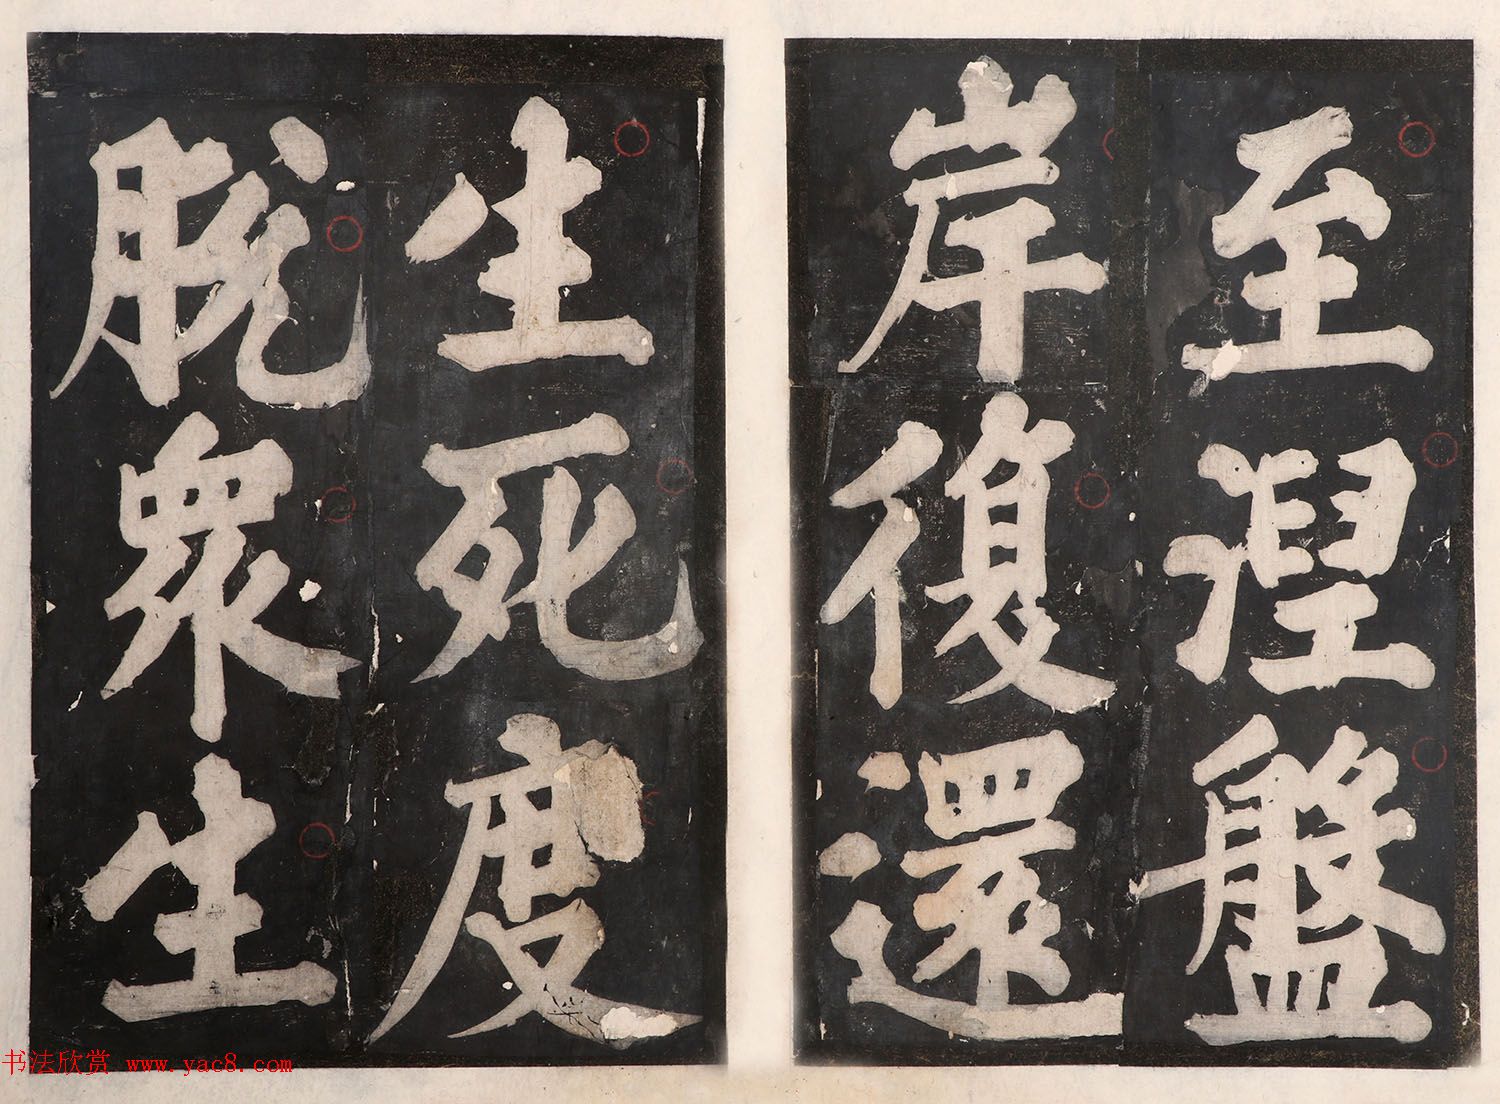 至湼盤
岸復還
生死度
脫衆生
书法欣赏 www.yac8.com